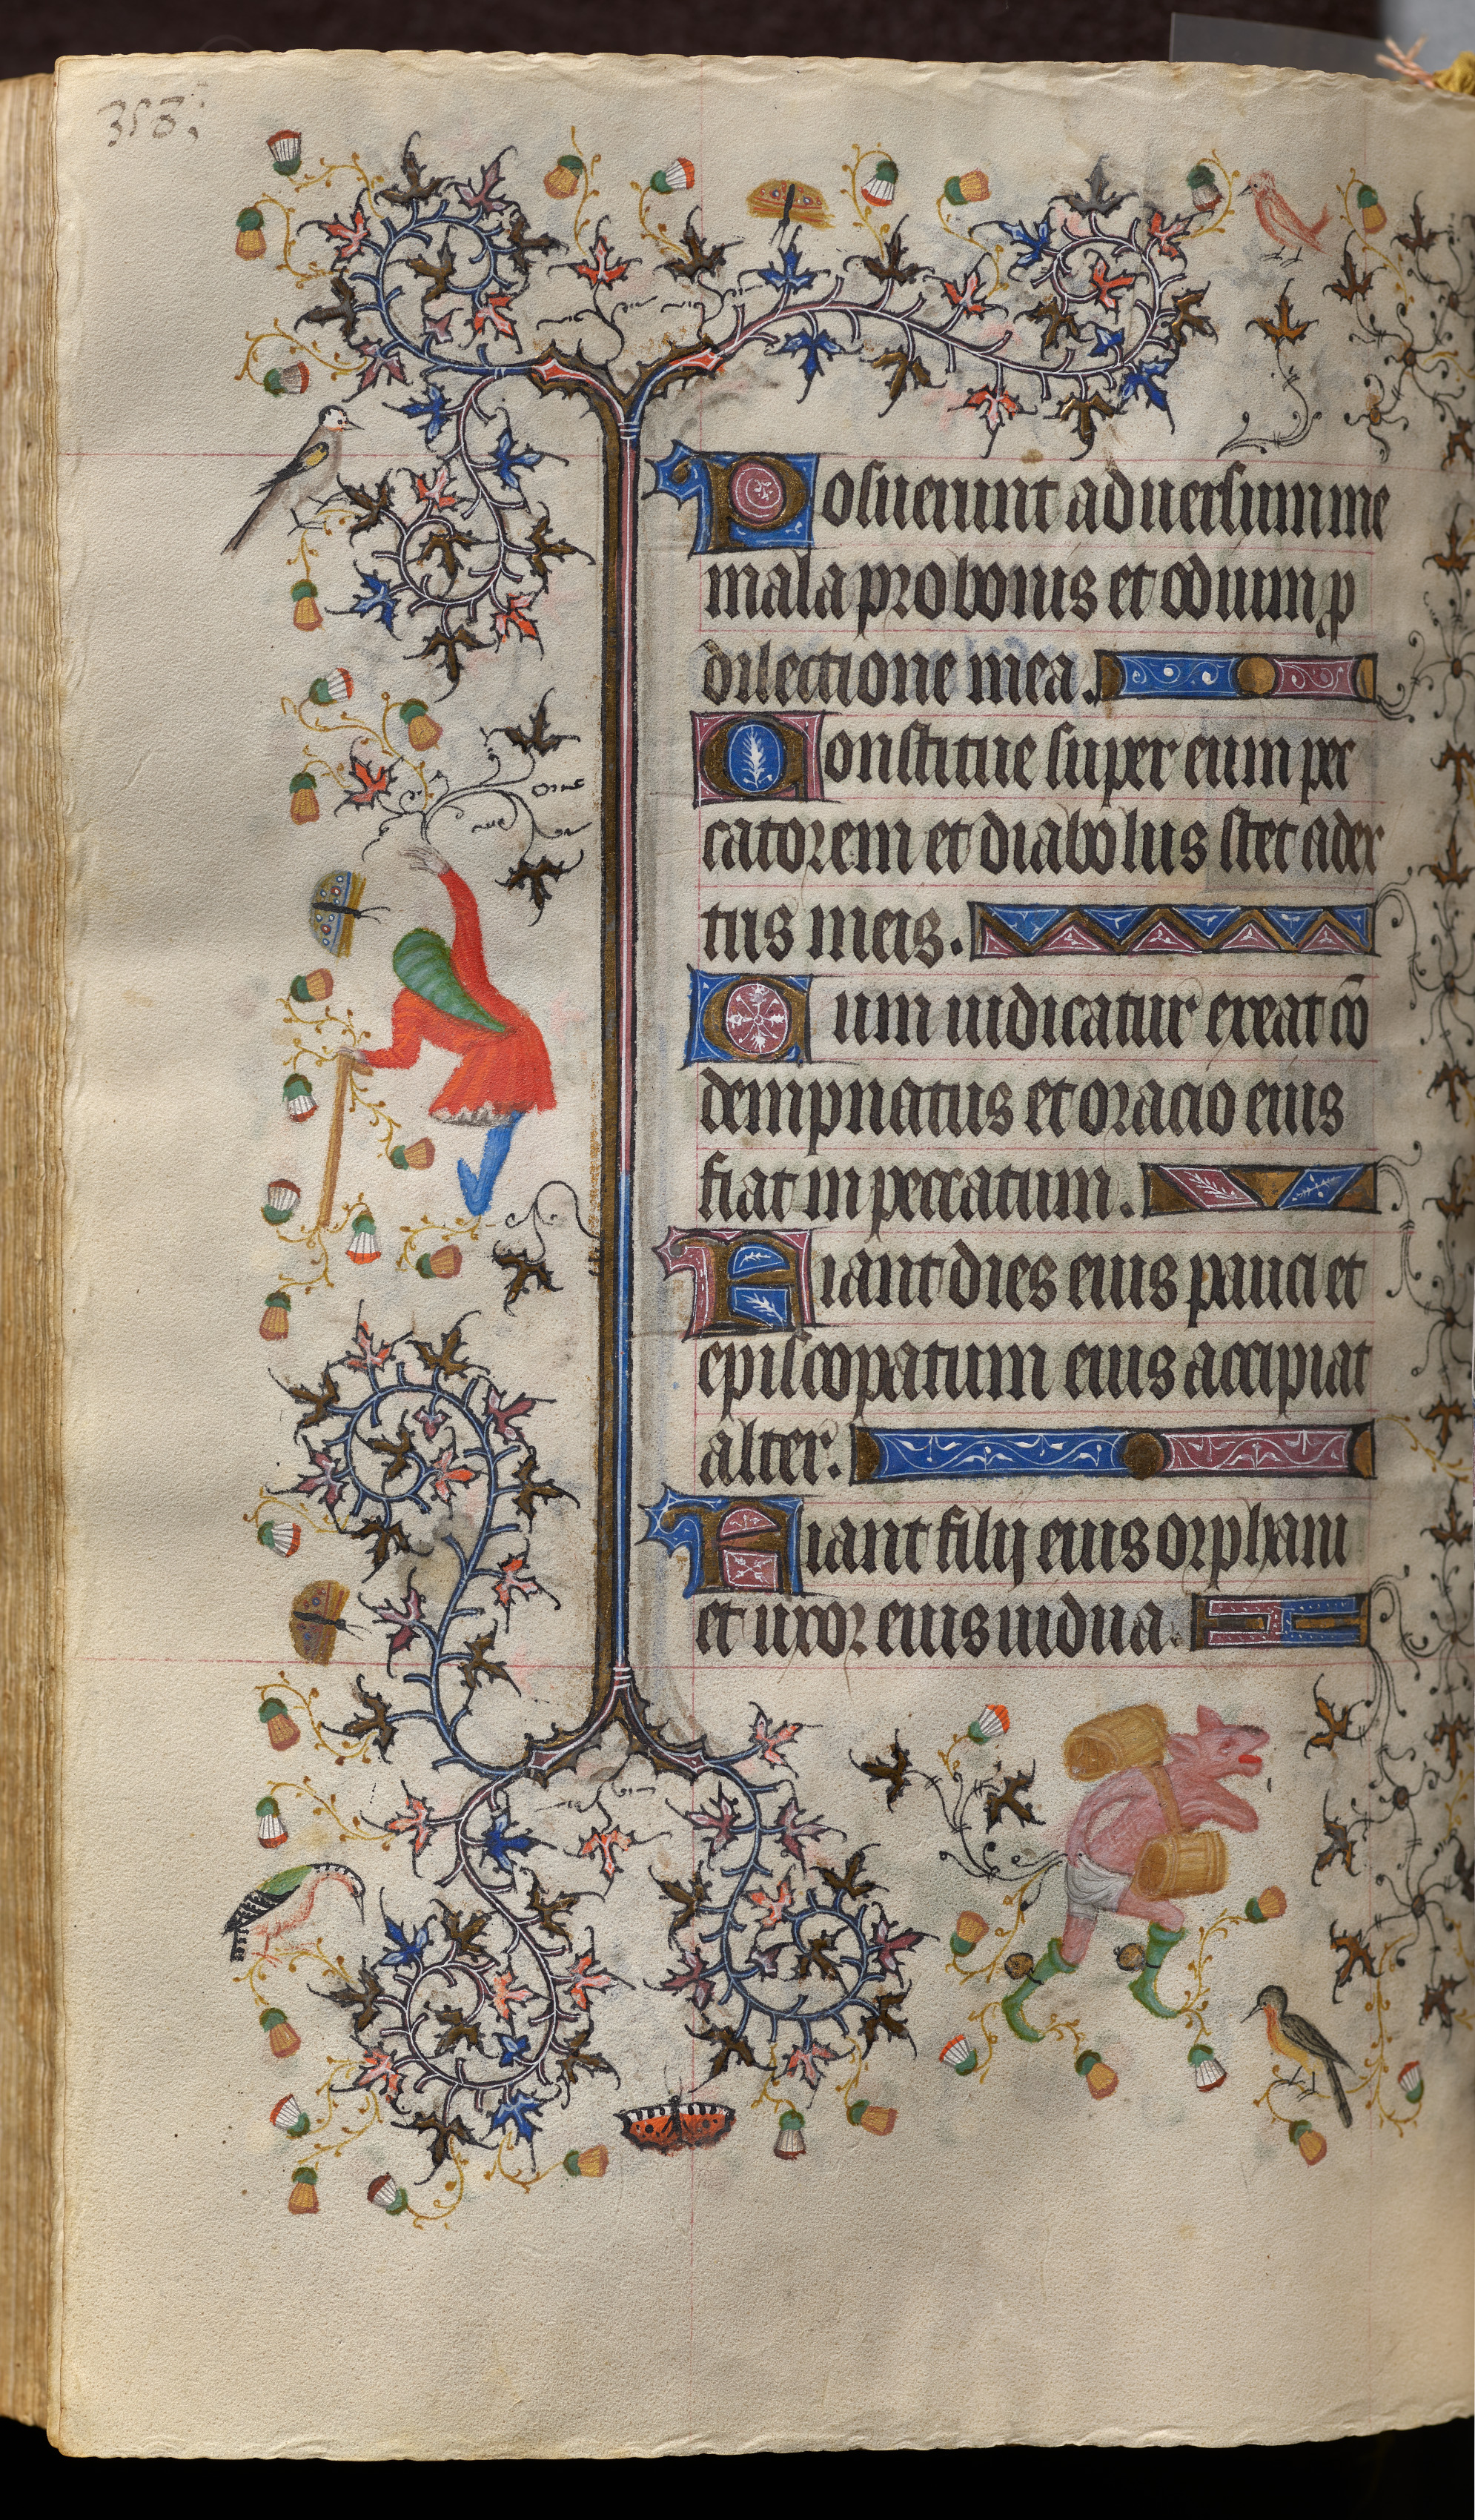 358
Posuerunt aduersum me
mala pro bonis et odium ꝓ
dilectione mea.
Constitue super eum pec
catorem et diabolus stet a dex
tris meis.
Cum iudicatur exeat cō
dempnatus et oracio eius
fiat in peccatum.
Fiant dies eius pauci et
episcopatum eius accipiat
alter.
Fiant filij eius orphani
et uxor eius uidua.